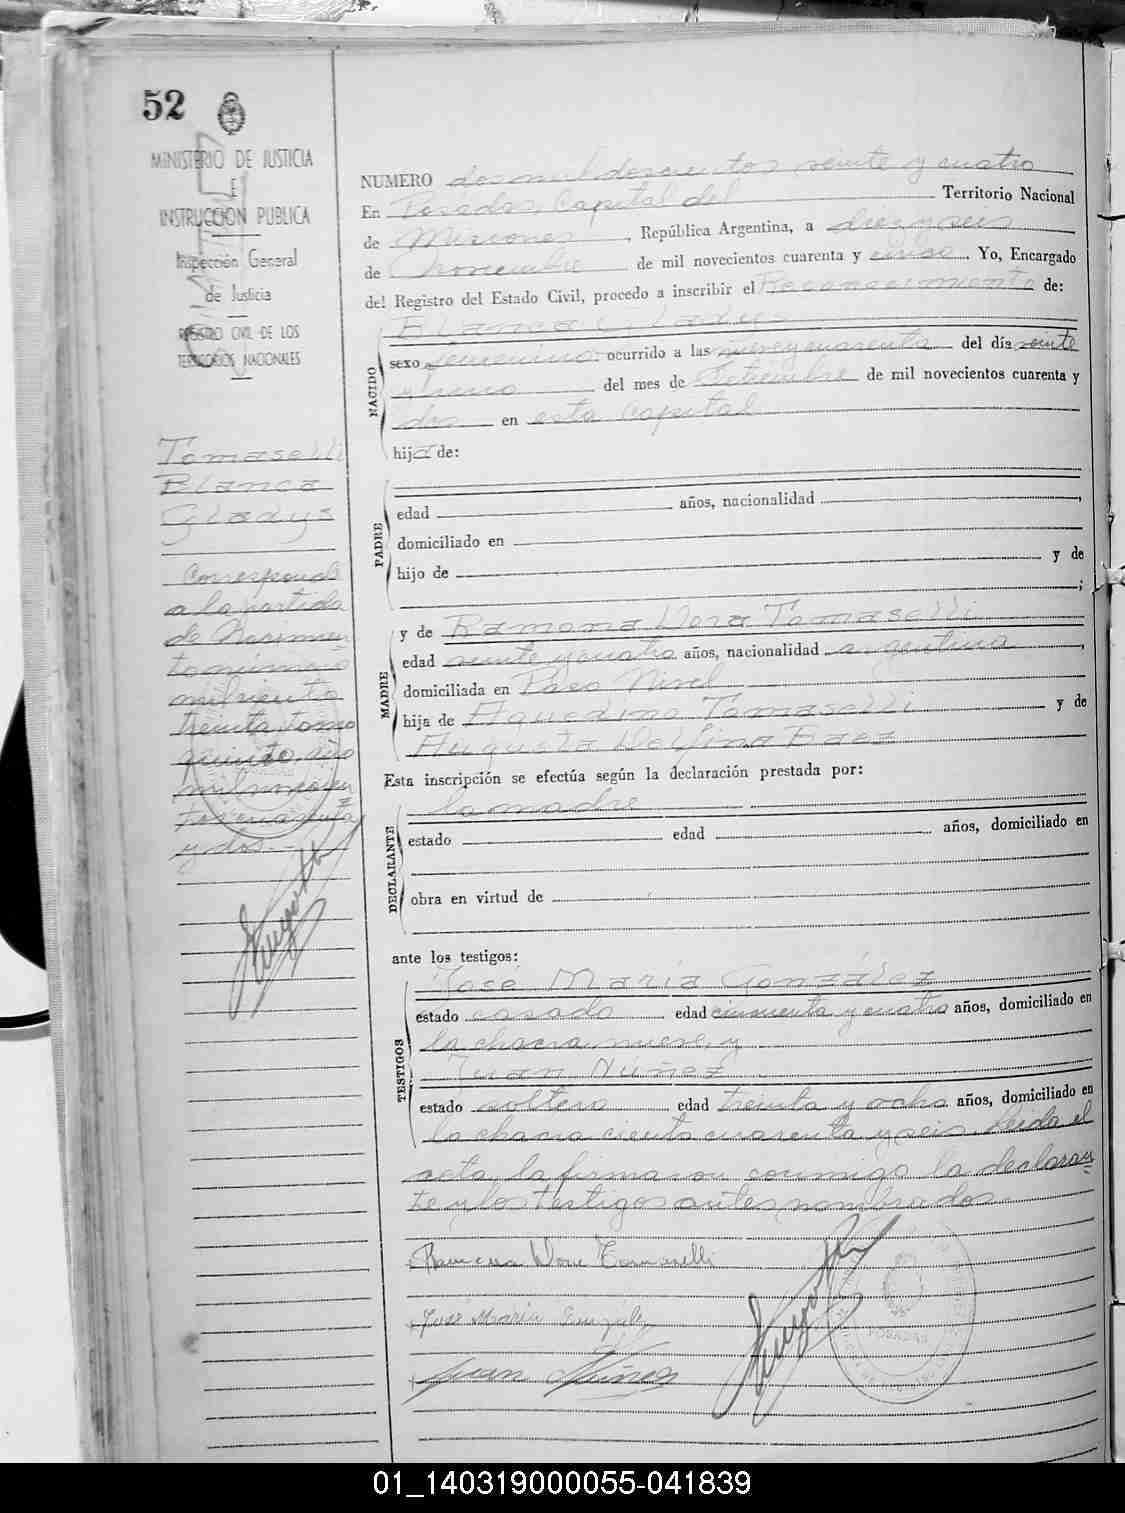 52
MINISTERIO DE JUSTICIA
E
INSTRUCCION PUBLICA
Inspección General
de Justicia
REGISTRO CIVIL DE LOS
TERRITORIOS NACIONALES
Tomaselli
Blanca
Gladys
Corresponde
a la partida
de Nacimien
to número
mil ciento
treinta, tomo
quinto, año
mil novecien
tos cuarenta
y dos.-
NUMERO dos mil doscientos veinte y cuatro
En Posadas, Capital del Territorio Nacional
de Misiones, República Argentina, a diez y seis
de noviembre de mil novecientos cuarenta y cinco. Yo, Encargado
del Registro del Estado Civil, procedo a inscribir el Reconocimiento de:
Blanca Gladys
NACIDO
sexo femenino ocurrido a las nueve y cuarenta del día veinte
y uno del mes de Setiembre de mil novecientos cuarenta y
dos en esta Capital
hija de:
PADRE
edad años, nacionalidad
domiciliado en
hijo de y de
;
MADRE
y de Ramona Dora Tomaselli
edad veinte y cuatro años, nacionalidad argentina,
domiciliada en Paso Nivel
hija de Aquedino Tomaselli y de
Augusta Delfina Baez
Esta inscripción se efectúa según la declaración prestada por:
DECLARANTE
la madre
estado edad años, domiciliado en
obra en virtud de
ante los testigos:
TESTIGOS
José María González
estado casado edad cincuenta y cuatro años, domiciliado en
la chacra nueve, y
Juan Núñez
estado soltero edad treinta y ocho años, domiciliado en
la chacra ciento cuarenta y seis. Leida el
acta, la firmaron conmigo la declaran
te y los testigos antes nombrados.
Ramona Dora Tomaselli
José María González
Juan Núñez
POSADAS
01_140319000055-041839